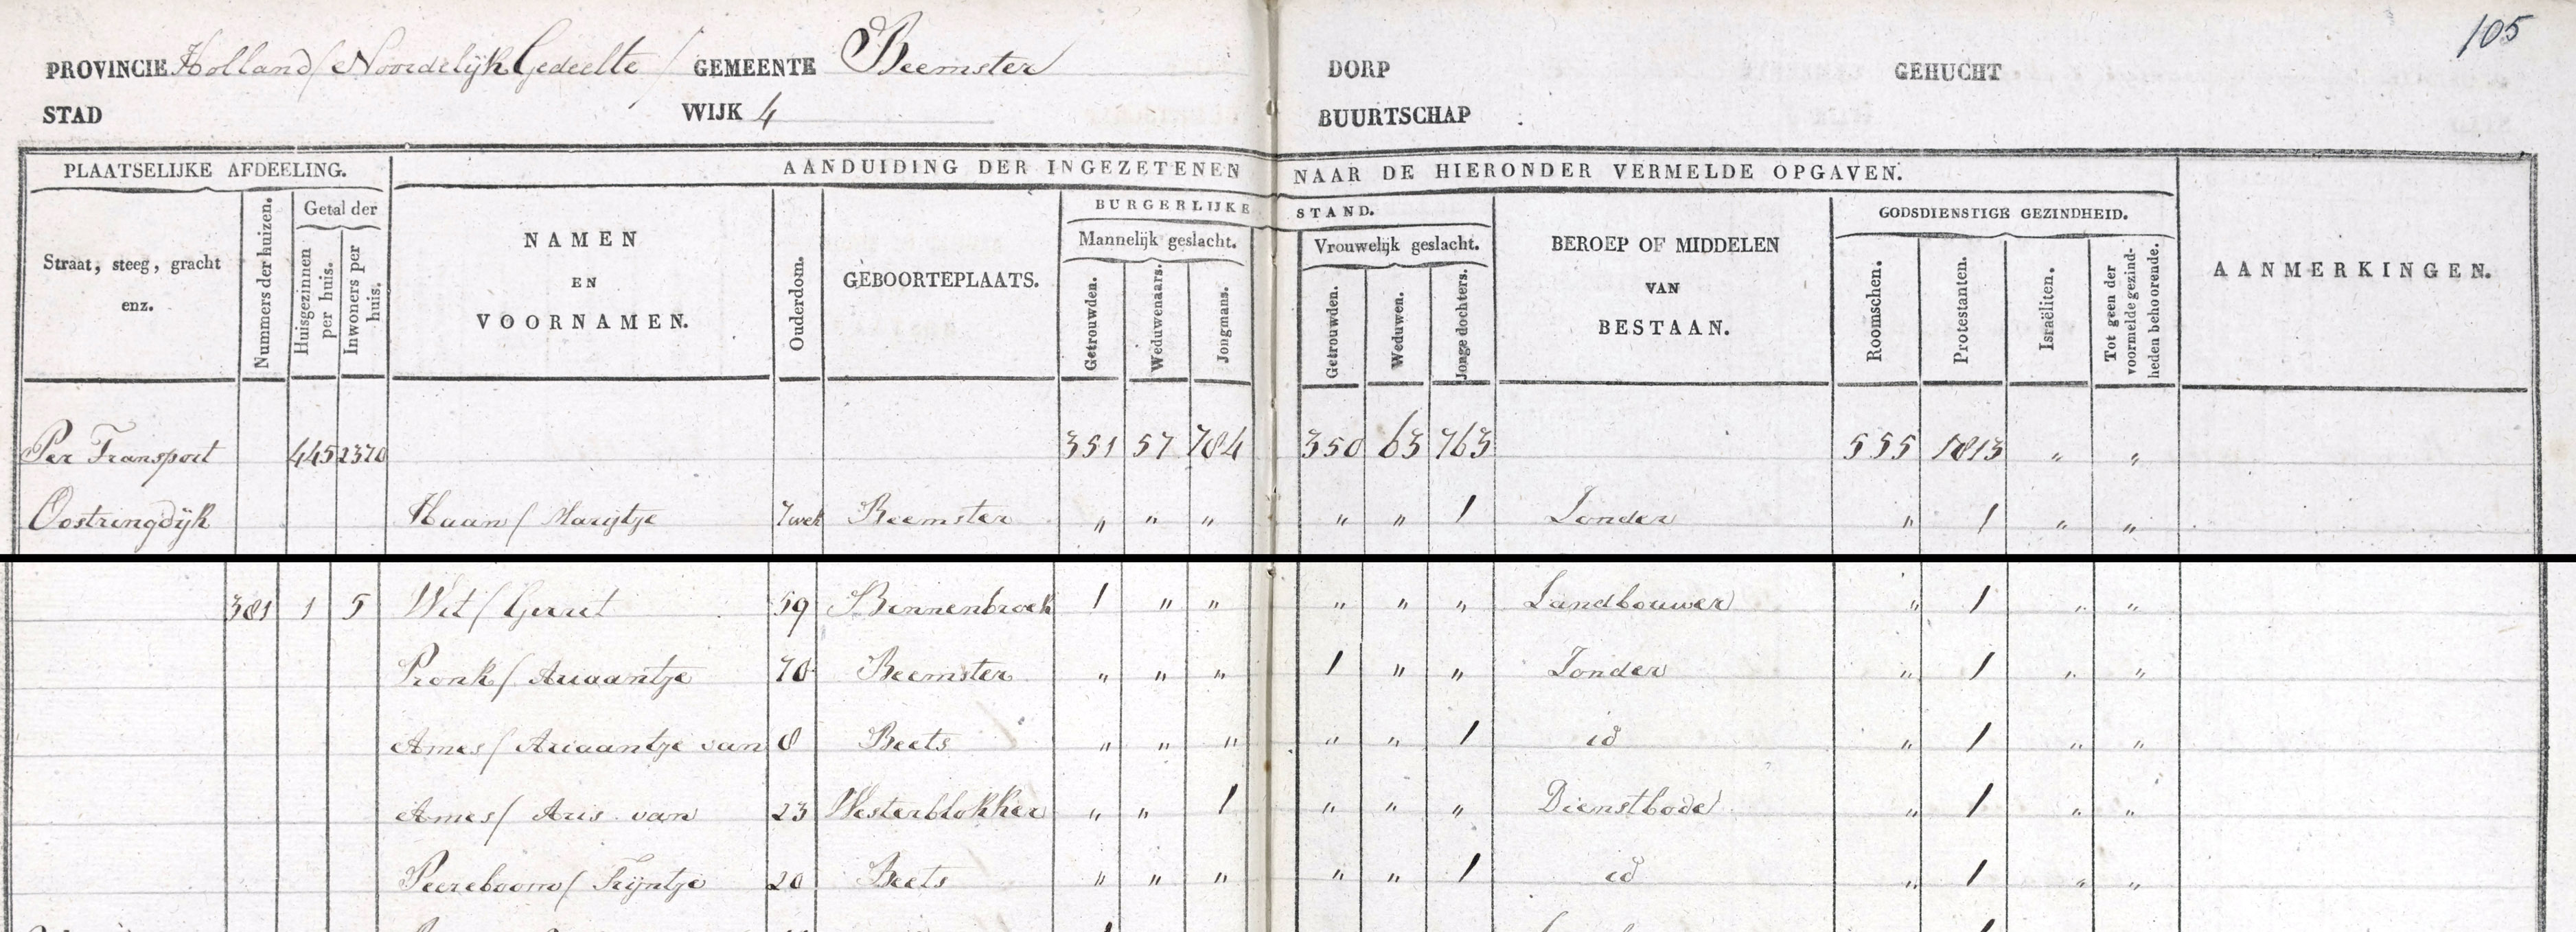 105
PROVINCIE Holland / Noordelijk Gedeelte / GEMEENTE Beemster DORP GEHUCHT
STAD WIJK 4 BUURTSCHAP
PLAATSELIJKE AFDEELING. AANDUIDING DER INGEZETENEN NAAR DE HIERONDER VERMELDE OPGAVEN.
Straat, steeg, gracht enz.
Nummers der huizen.
Getal der
Huisgezinnen per huis.
Inwoners per huis.
NAMEN
EN
VOORNAMEN.
Ouderdom.
GEBOORTEPLAATS.
BURGERLIJKE STAND.
Mannelijk geslacht.
Getrouwden.
Weduwenaars.
Jongmans.
Vrouwelijk geslacht.
Getrouwden.
Weduwen.
Jonge dochters.
BEROEP OF MIDDELEN
VAN
BESTAAN.
GODSDIENSTIGE GEZINDHEID.
Roomschen.
Protestanten.
Israëliten.
Tot geen der voormelde gezindheden behoorende.
AANMERKINGEN.
Per Transport 445 2370 351 57 784 350 63 763 555 1813 " "
Oostringdijk Haan / Marijtje 7 wek Beemster " " " " " 1 Zonder " 1 " "
381 1 5 Wit / Gerrit 59 Bennenbroek 1 " " " " " Landbouwer " 1 " "
Pronk / Ariaantje 70 Beemster " " " 1 " " Zonder " 1 " "
Ames / Ariaantje van 8 Beets " " " " " 1 id " 1 " "
Ames / Aris van 23 Westerblokker " " 1 " " " Dienstbode " 1 " "
Peereboom / Trijntje 20 Beets " " " " " 1 id " 1 " "